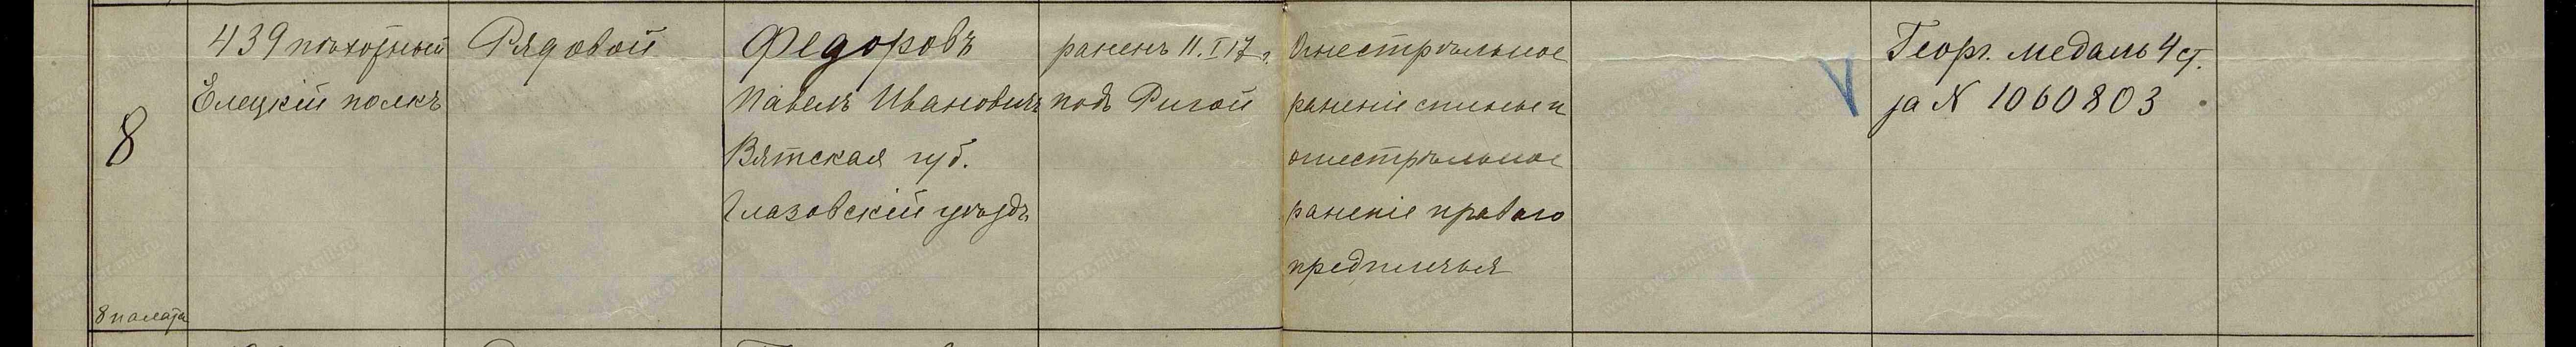 8
8 палата
439 пѣхотный
Елецкій полкъ
Рядовой
Федоровъ
Павелъ Ивановичъ
Вятская губ.
Глазовскій уѣздъ
раненъ 11.I 17 г.
подъ Ригой
Огнестрѣльное
раненіе спины и
огнестрѣльное
раненіе праваго
предплечья
Георг. медаль 4 ст.
за № 1060803